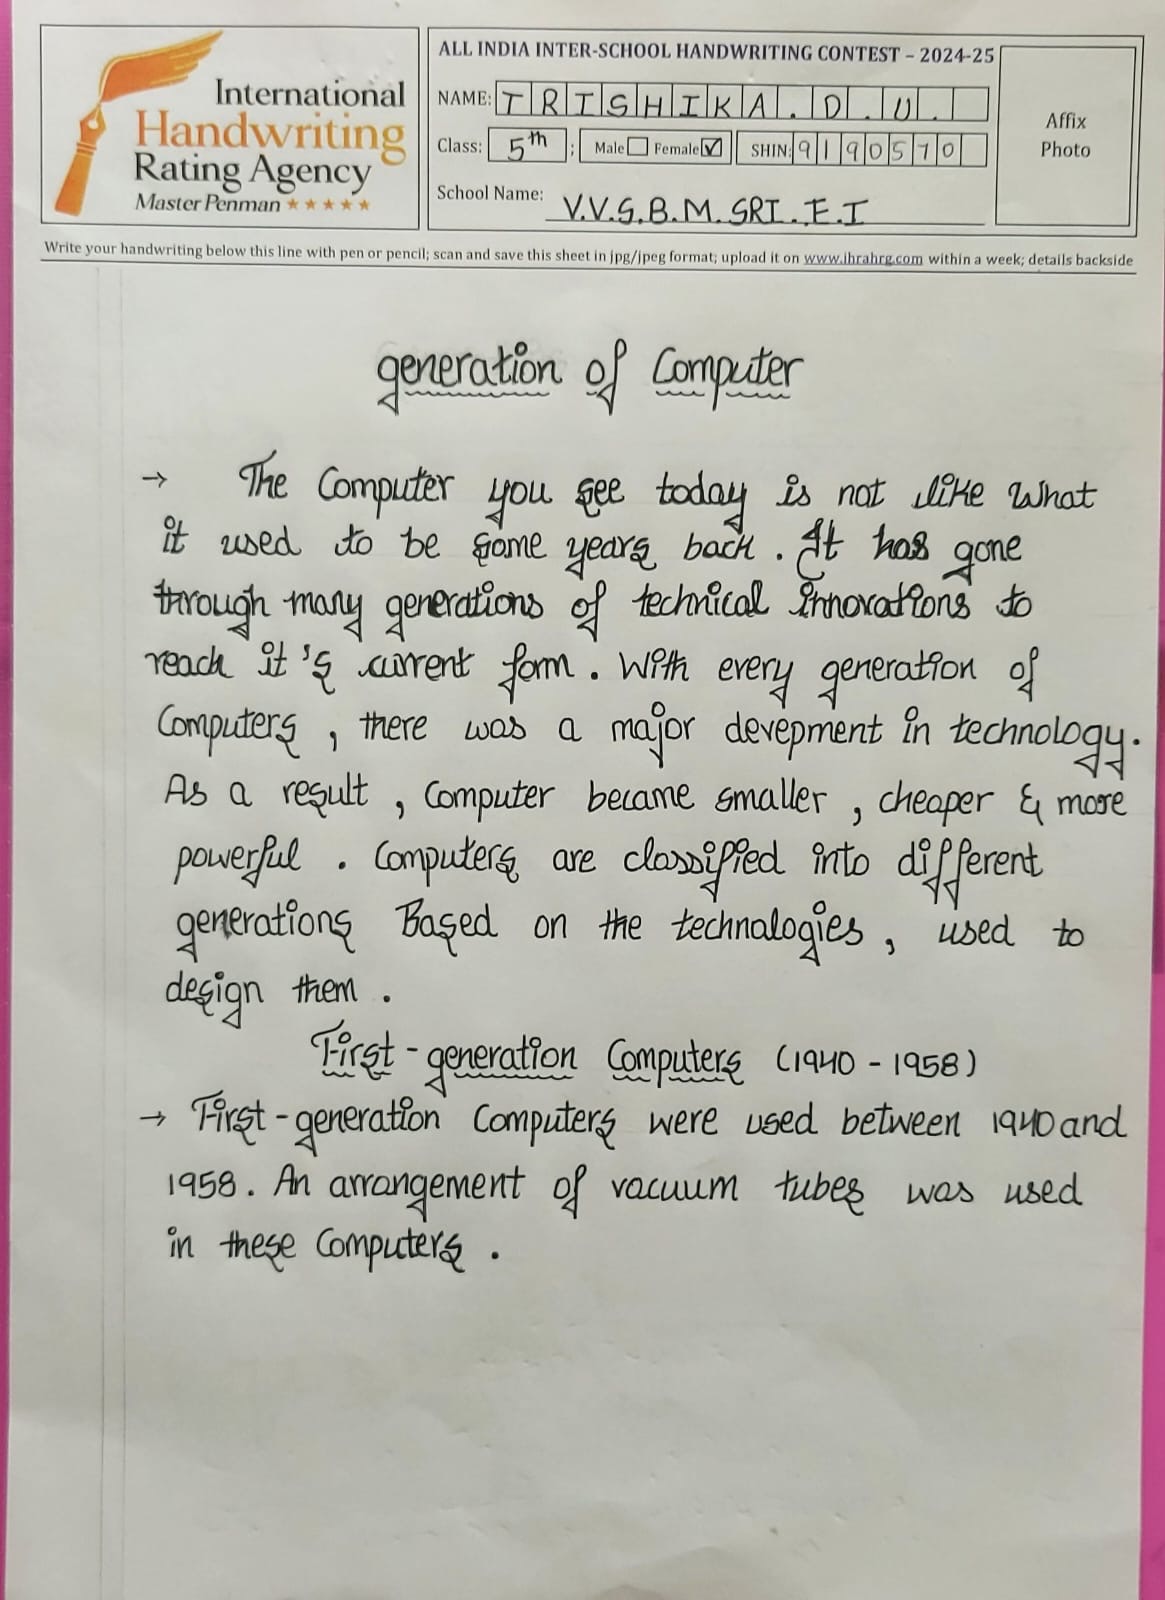 International
Handwriting
Rating Agency
Master Penman ★★★★★
ALL INDIA INTER-SCHOOL HANDWRITING CONTEST – 2024-25
NAME: TRISHIKA.D.U.
Class: 5th ; Male Female ✓ SHIN: 9190570
School Name: V.V.S.B.M.SRI.E.I
Affix
Photo
Write your handwriting below this line with pen or pencil; scan and save this sheet in jpg/jpeg format; upload it on www.ihrahrg.com within a week; details backside
generation of Computer
→ The Computer you see today is not like What
it used to be some years back . It has gone
through many generations of technical innovations to
reach it's current form . With every generation of
Computers , there was a major devepment in technology.
As a result , Computer became smaller , cheaper & more
powerful . Computers are classified into different
generations Based on the technalogies , used to
design them .
First - generation Computers (1940 - 1958)
→ First - generation Computers were used between 1940 and
1958. An arrangement of vacuum tubes was used
in these Computers .